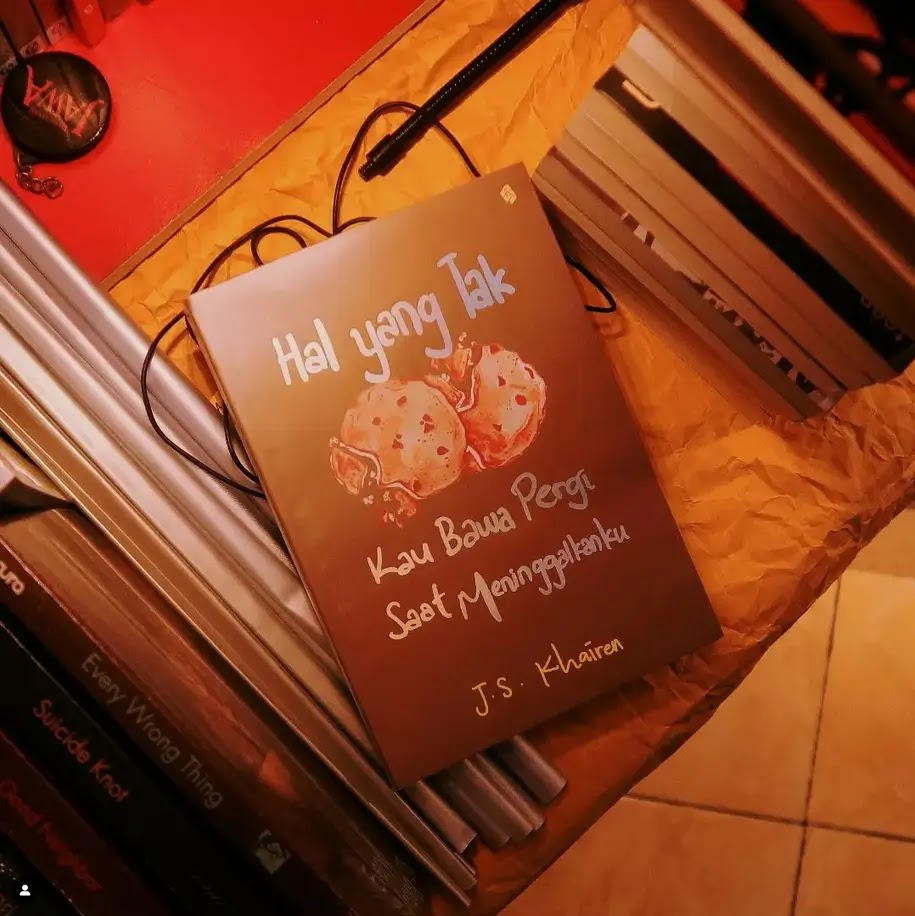 JAWA
Hal yang Tak
Kau Bawa Pergi
Saat Meninggalkanku
J.S. Khairen
Every Wrong Thing
Suicide Knot
Good Neighbor